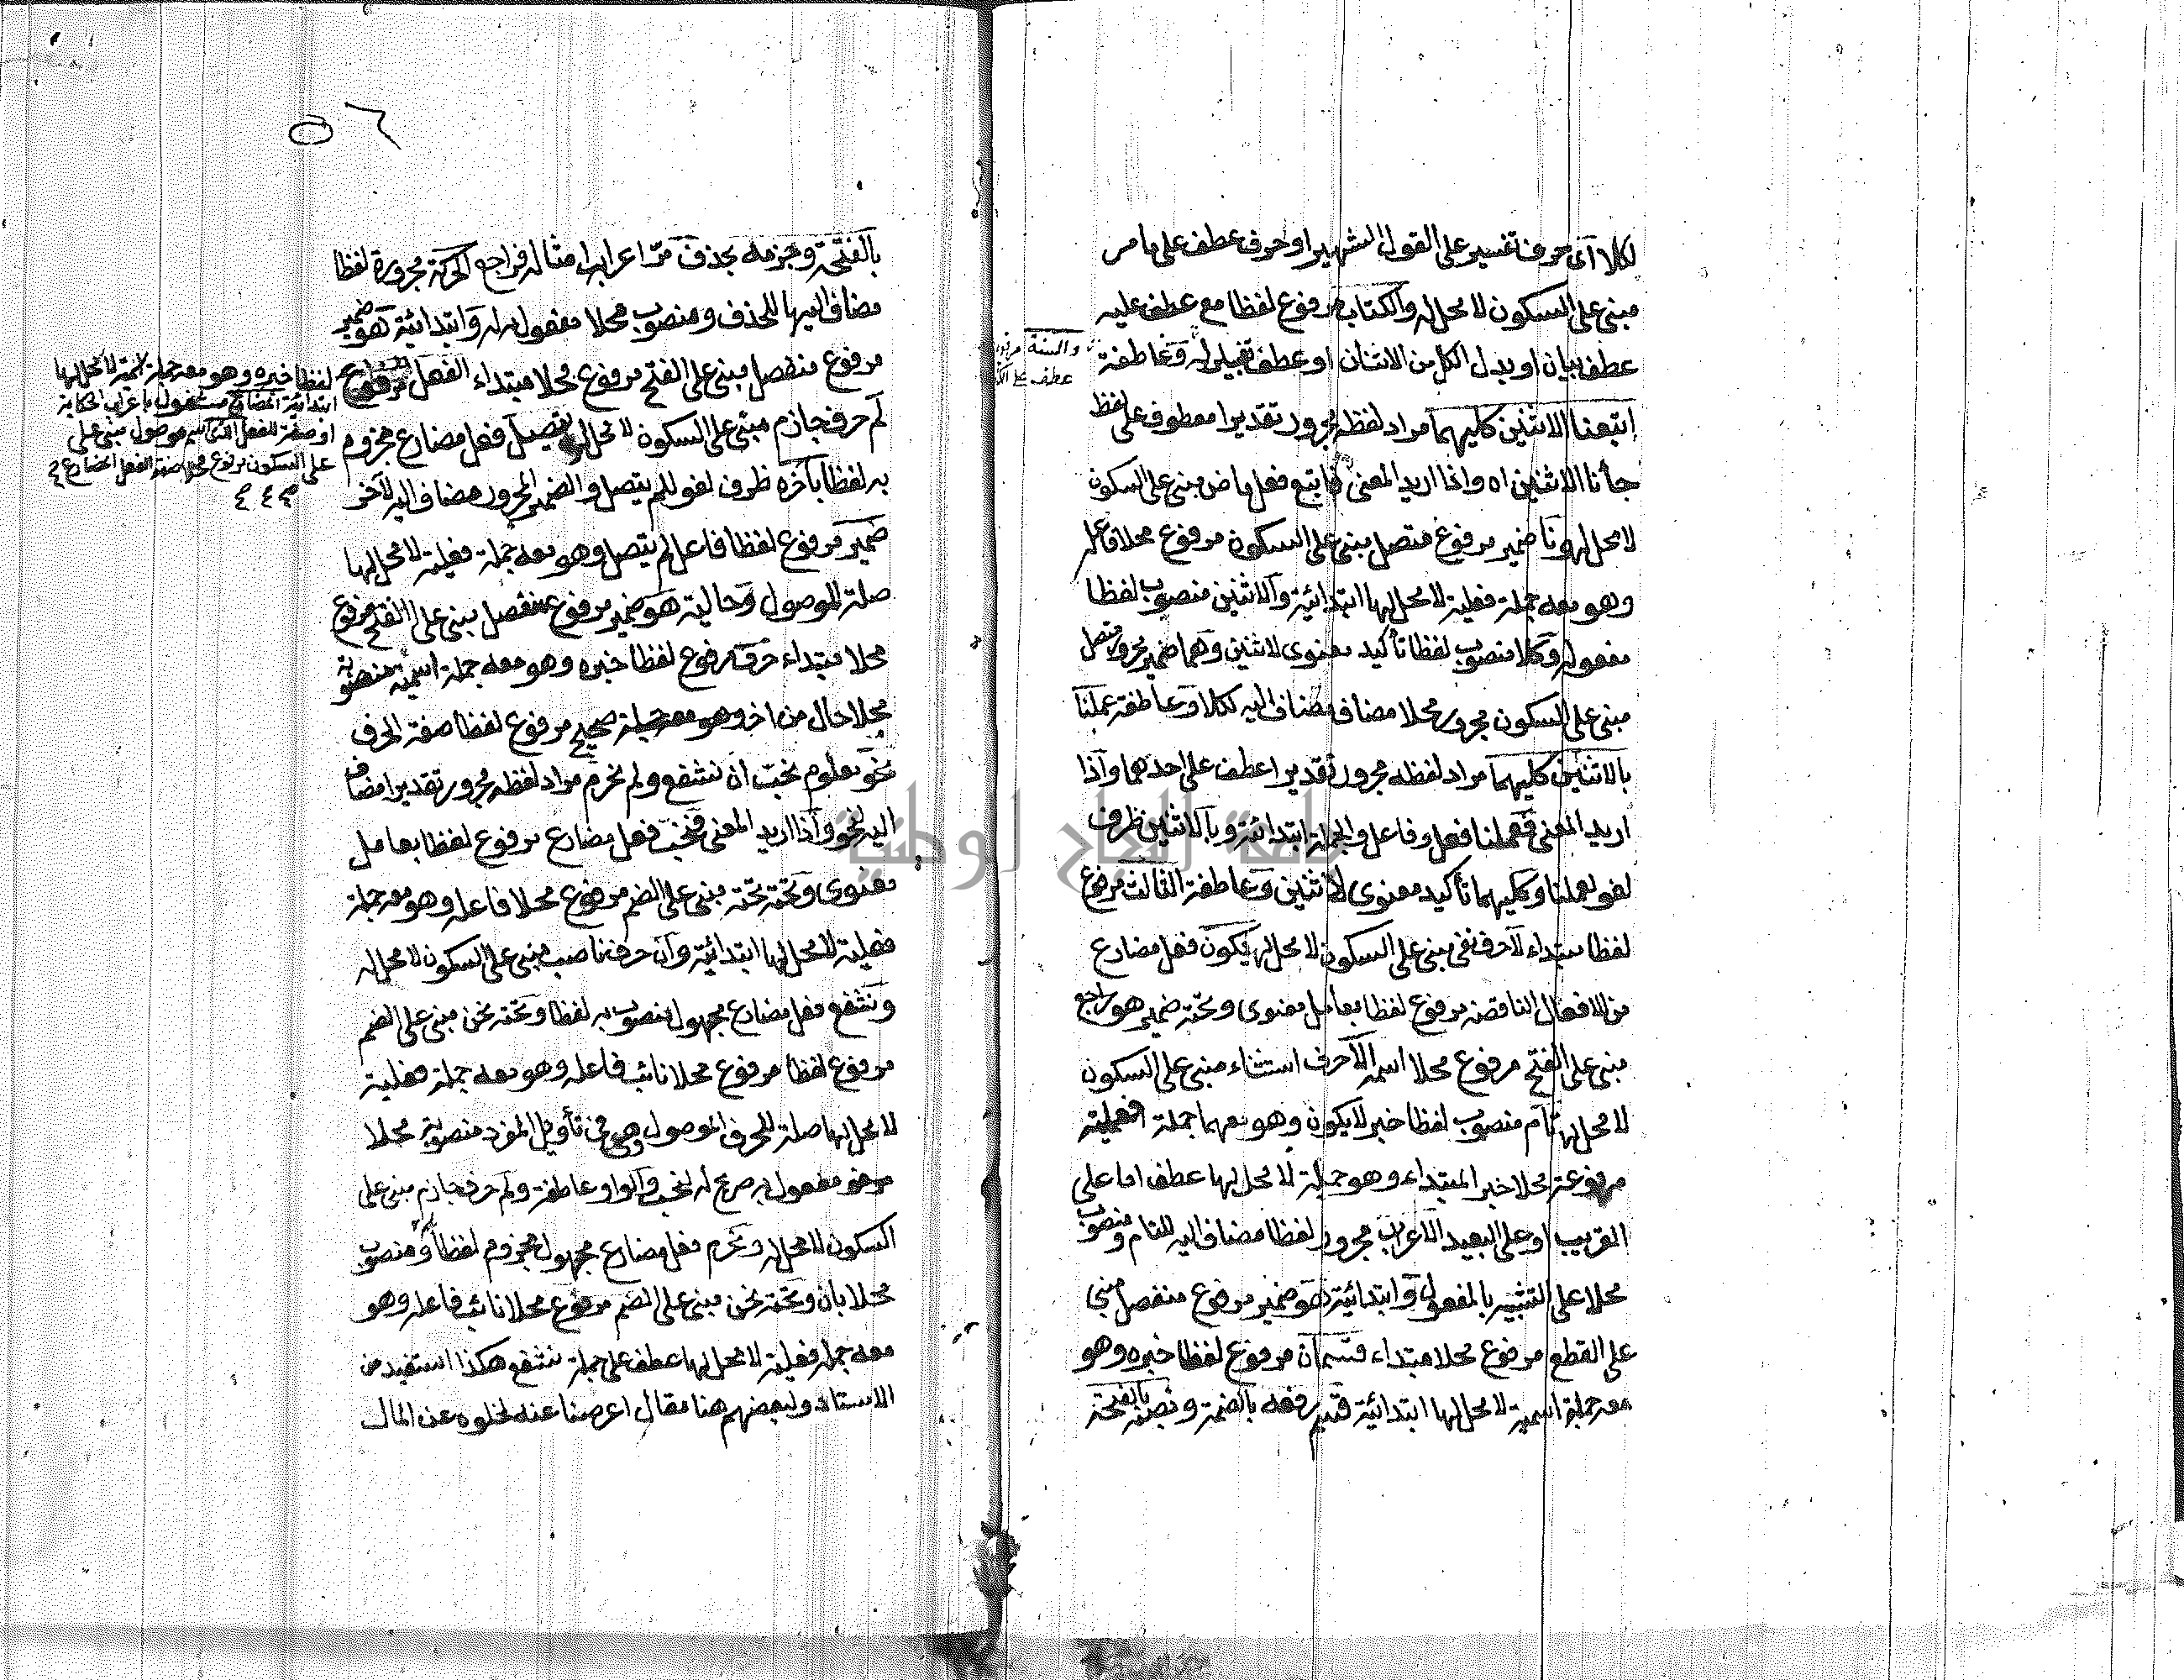 لكلا اى حرف تفسير على القول الشهير او حرف عطف على ما مر
مبنى على السكون لا محل له والكتاب مرفوع لفظا مع عطف عليه
عطف بيان او بدل الكل من الاثنان او عطف تفسير له وعاطفة
والسنة
عطف على
اتبعنا الاثنين كليهما مراد لفظه مجرور تقديرا معطوف على لفظ
جاءنا الاثنين اه واذا اريد المعنى فاتبع فعل ماض مبنى على السكون
لا محل له ونا ضمير مرفوع متصل مبنى على السكون مرفوع محلا فاعله
وهو معه جملة فعلية لا محل لها ابتدائية والاثنين منصوب لفظا
مفعوله وكلا منصوب لفظا تأكيد معنوى لاثنين وهما ضمير مجرور متصل
مبنى على السكون مجرور محلا مضاف مضاف اليه لكلا وعاطفة عملنا
بالاثنين كليهما مراد لفظه مجرور تقديرا عطف على احدهما واذا
اريد المعنى فعملنا فعل وفاعل والجملة ابتدائية وبالاثنين ظرف
لغو لعملنا وكليهما تأكيد معنوى لاثنين وعاطفة الثالث مرفوع
لفظا مبتداء لا حرف نفى مبنى على السكون لا محل له يكون فعل مضارع
من الافعال الناقصة مرفوع لفظا بعامل معنوى وتحته ضمير هو راجع
مبنى على الفتح مرفوع محلا اسمه الا حرف استثناء مبنى على السكون
لا محل له تام منصوب لفظا خبر لا يكون وهو معهما جملة فعلية
مرفوعة محلا خبر المبتداء وهو جملة لا محل لها عطف اما على
القريب او على البعيد الاعراب مجرور لفظا مضاف اليه للتام ومنصوب
محلا على التشبيه بالمفعول وابتدائية هو ضمير مرفوع منفصل مبنى
على القطع مرفوع محلا مبتداء قسمان مرفوع لفظا خبره وهو
معه جملة اسمية لا محل لها ابتدائية قسم رفعه بالضمة ونصبه بالفتحة
٥٦
بالفتحة وجزمه بحذف مرّ اعراب امثاله فراجع الحركة مجرورة لفظا
مضاف اليها للحذف ومنصوب محلا مفعول به له وابتدائية هو ضمير
مرفوع منفصل مبنى على الفتح مرفوع محلا مبتداء الفعل مرفوع
لفظا خبره وهو معه جملة اسمية لا محل لها
ابتدائية المضارع مشغول باعراب الحكاية
او صفة للفعل الذى اسم موصول مبنى على
على السكون مرفوع محلا صفة الفعل المضارع
لم حرف جازم مبنى على السكون لا محل له يتصل فعل مضارع مجزوم
به لفظا بآخره ظرف لغو للم يتصل والضمير المجرور مضاف اليه لآخر
ضمير مرفوع لفظا فاعل لم يتصل وهو معه جملة فعلية لا محل لها
صلة الموصول وحالية هو ضمير مرفوع منفصل مبنى على الفتح مرفوع
محلا مبتداء حرف مرفوع لفظا خبره وهو معه جملة اسمية منصوبة
محلا حال من اخر صحيح مرفوع لفظا صفة الحرف
نحو معلوم نحب ان نشفع ولم نحرم مراد لفظه مجرور تقديرا مضاف
اليه لنحو واذا اريد المعنى فنحب فعل مضارع مرفوع لفظا بعامل
معنوى وتحته نحن مبنى على الضم مرفوع محلا فاعله وهو معه جملة
فعلية لا محل لها ابتدائية وان حرف ناصب مبنى على السكون لا محل له
ونشفع فعل مضارع مجهول منصوب به لفظا وتحته نحن مبنى على الضم
مرفوع لفظا مرفوع محلا نائب فاعله وهو معه جملة فعلية
لا محل لها صلة للحرف الموصول وهى فى تأويل المفرد منصوبة محلا
مفعول به صريح له لنحب والواو عاطفة ولم حرف جازم مبنى على
السكون لا محل له ونحرم فعل مضارع مجهول مجزوم لفظا ومنصوب
محلا بان وتحته نحن مبنى على الضم مرفوع محلا نائب فاعله وهو
معه جملة فعلية لا محل لها عطف على جملة نشفع هكذا استفيد من
الاستاذ ولبعضهم هنا مقال اعرضنا عنه لخلوه عن المال
جامعة النجاح الوطنية